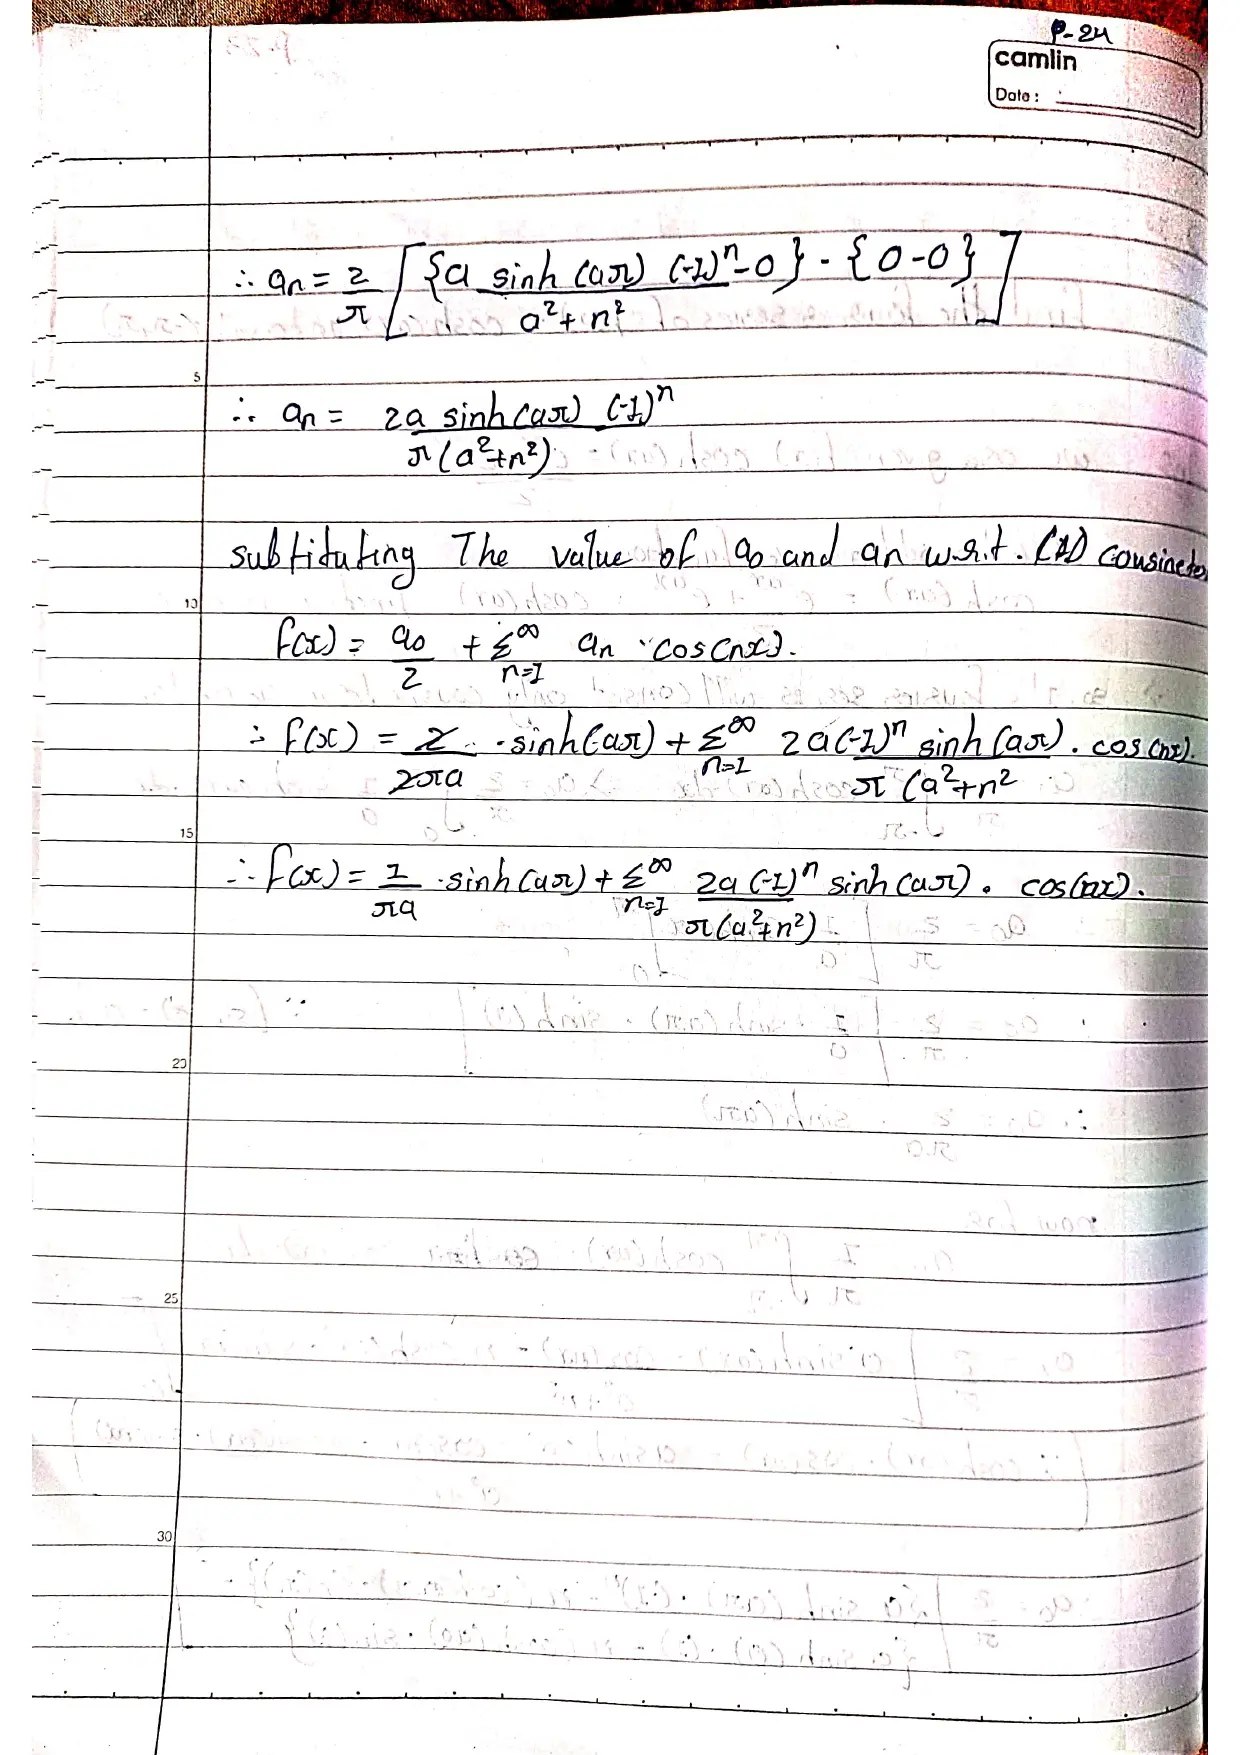 P-24
camlin
Date :
∴ an = 2/π [{a sinh (aπ) (-1)^n - 0} - {0-0}] / a²+n²
5
∴ an = 2a sinh(aπ) (-1)^n / π(a²+n²)
subtituting The value of a0 and an w.r.t. (1)
10
f(x) = a0/2 + Σ^∞ n=1 an · cos(nx).
∴ f(x) = 2/2πa · sinh(aπ) + Σ^∞ n=1 2a(-1)^n sinh(aπ) / π(a²+n² . cos(nx).
15
∴ f(x) = 1/πa · sinh(aπ) + Σ^∞ n=1 2a(-1)^n sinh(aπ) / π(a²+n²) . cos(nx).
20
25
30